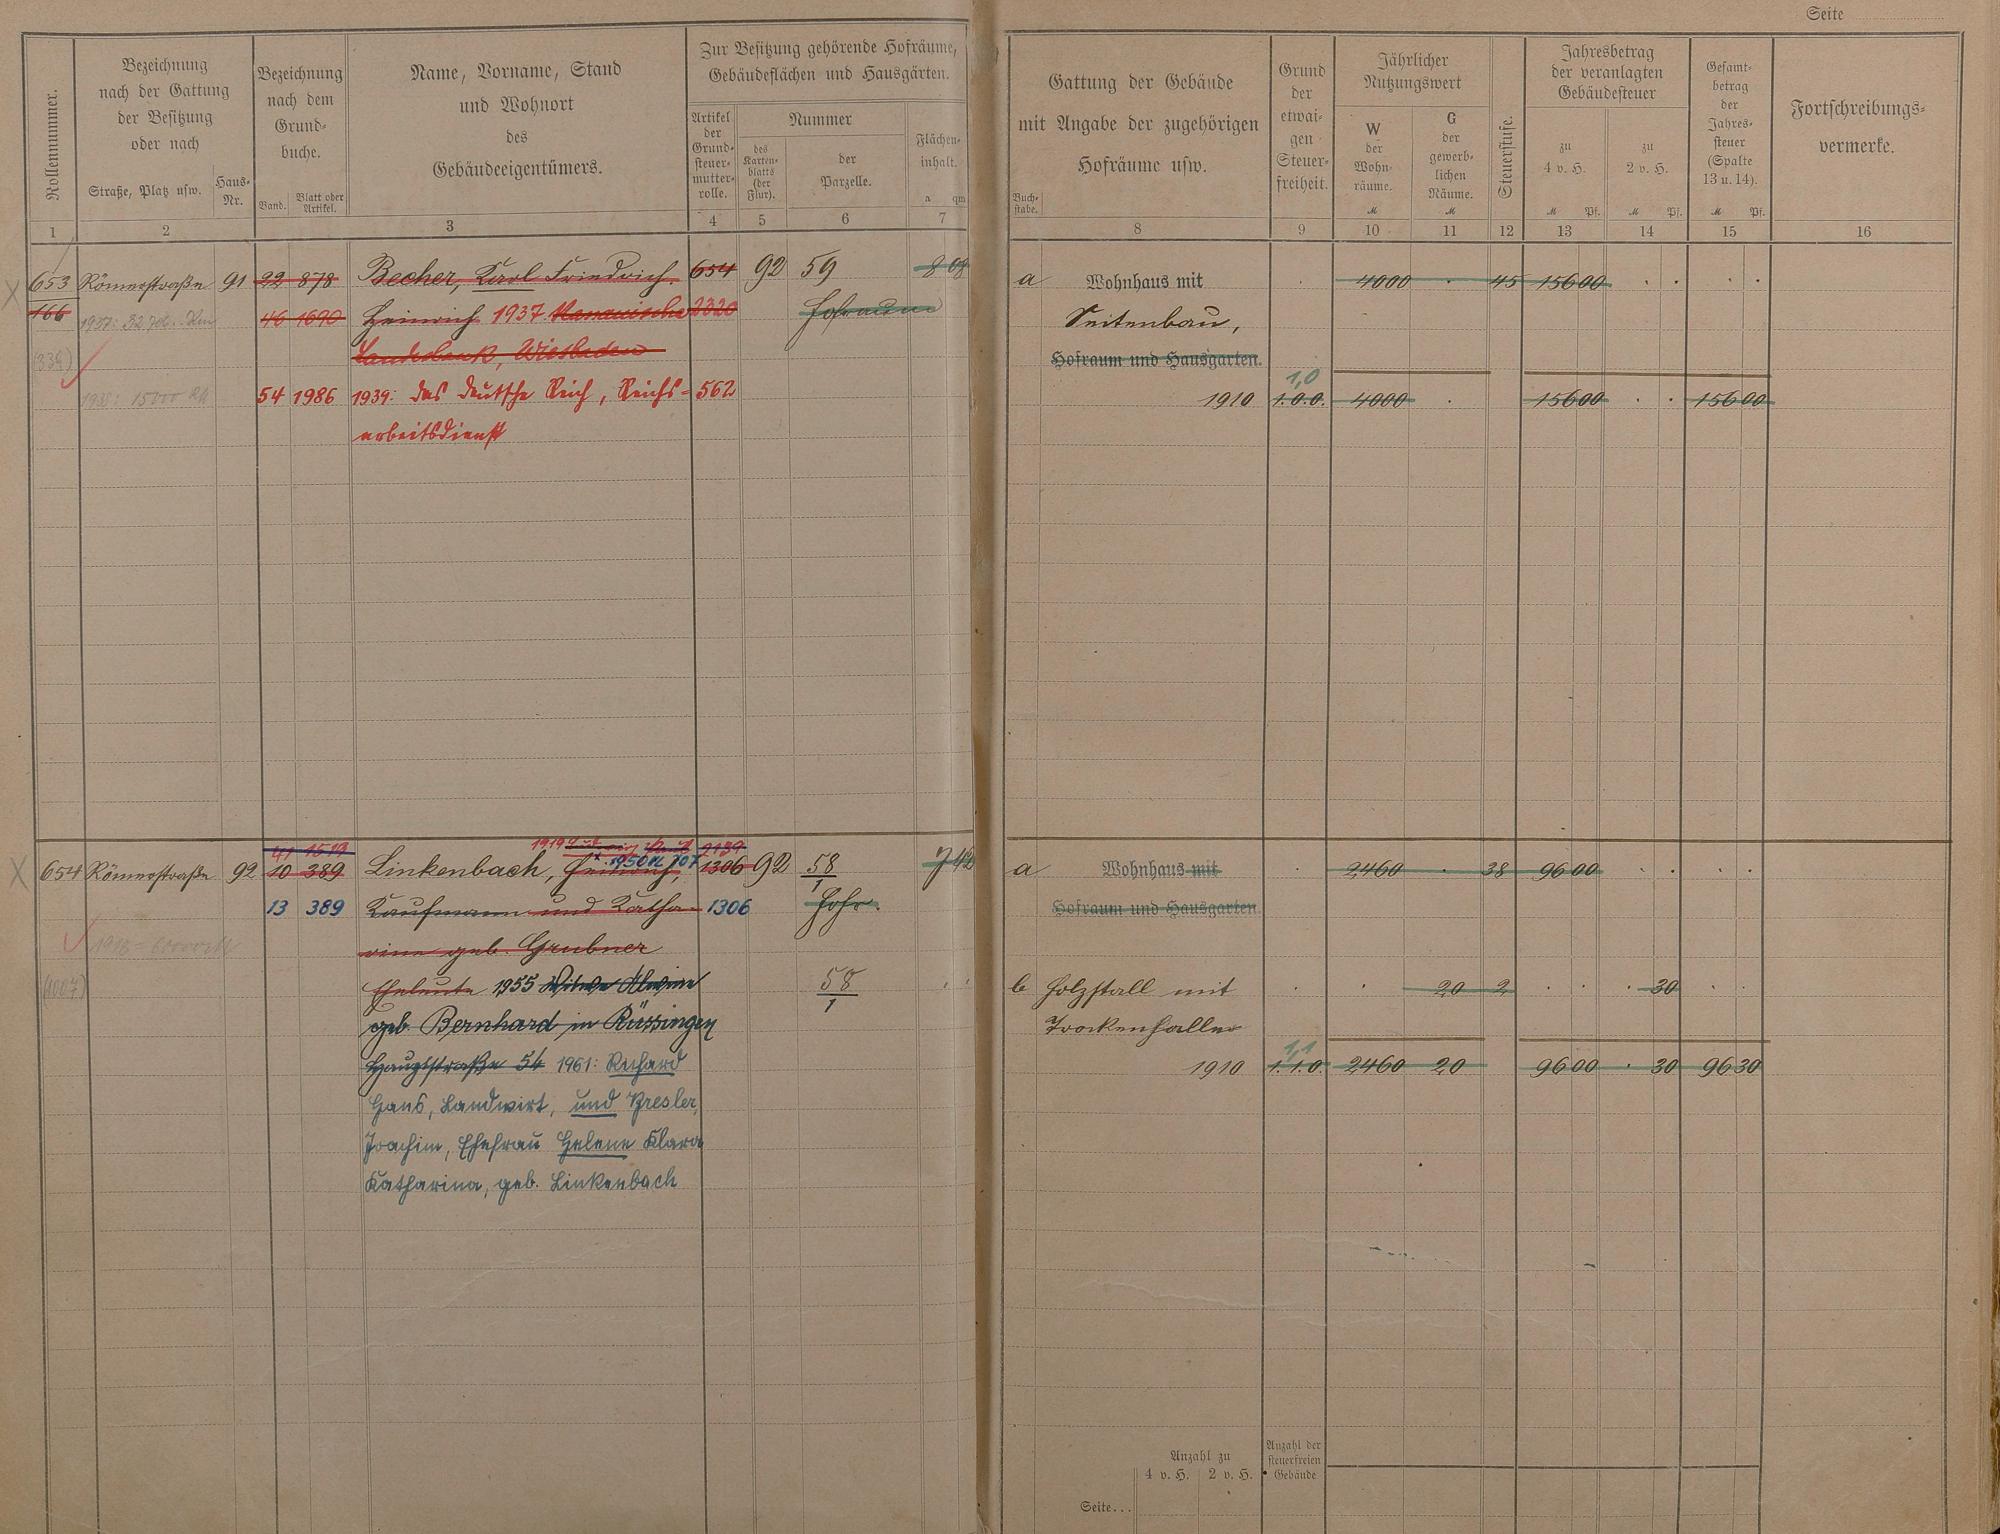 Seite
Rollennummer.
Bezeichnung
nach der Gattung
der Besitzung
oder nach
Straße, Platz usw.
Haus-
Nr.
Bezeichnung
nach dem
Grund-
buche.
Band.
Blatt oder
Artikel.
Name, Vorname, Stand
und Wohnort
des
Gebäudeeigentümers.
Zur Besitzung gehörende Hofräume,
Gebäudeflächen und Hausgärten.
Artikel
der
Grund-
steuer-
mutter-
rolle.
Nummer
des
Karten-
blatts
(der
Flur).
der
Parzelle.
Flächen-
inhalt.
a qm
Gattung der Gebäude
mit Angabe der zugehörigen
Hofräume usw.
Buch-
stabe.
Grund
der
etwai-
gen
Steuer-
freiheit.
Jährlicher
Nutzungswert
W
der
Wohn-
räume.
M
G
der
gewerb-
lichen
Räume.
M
Steuerstufe.
Jahresbetrag
der veranlagten
Gebäudesteuer
zu
4 v. H.
M Pf.
zu
2 v. H.
M Pf.
Gesamt-
betrag
der
Jahres-
steuer
(Spalte
13 u. 14).
M Pf.
Fortschreibungs-
vermerke.
1 2 3 4 5 6 7 8 9 10 11 12 13 14 15 16
653 Römerstraße 91 22 878 Becher, Karl Friedrich 654 92 59 8 08 a Wohnhaus mit 4000 45 156 00
166 1937: 46 1690 Heinrich 1937 Nassauische 2320 Hofraum Seitenbau,
Landesbank, Wiesbaden Hofraum und Hausgarten.
1,0
1938: 15000 RM 54 1986 1939: das deutsche Reich, Reichs- 562 1910 1.0.0. 4000 156 00 156 00
arbeitsdienst
41 1519 1919 Ludwig 2139
1950
654 Römerstraße 92 10 389 Linkenbach, Heinrich, 1306 92 58/1 7 42 a Wohnhaus mit 2460 38 96 00
13 389 Kaufmann und Katha- 1306 Hofr. Hofraum und Hausgarten.
rine geb. Grubner
Eheleute 1955 Witwe Alwine 58/1 b Holzstall mit 20 2 30
geb. Bernhard in Rüssingen Trockenhalle
1,1
Hauptstraße 54 1961: Richard 1910 1.1.0. 2460 20 96 00 30 96 30
Hans, Landwirt, und Bresler,
Joachim, Ehefrau Helene Klara
Katharina, geb. Linkenbach
Anzahl zu
4 v. H. 2 v. H.
Anzahl der
steuerfreien
Gebäude
Seite...